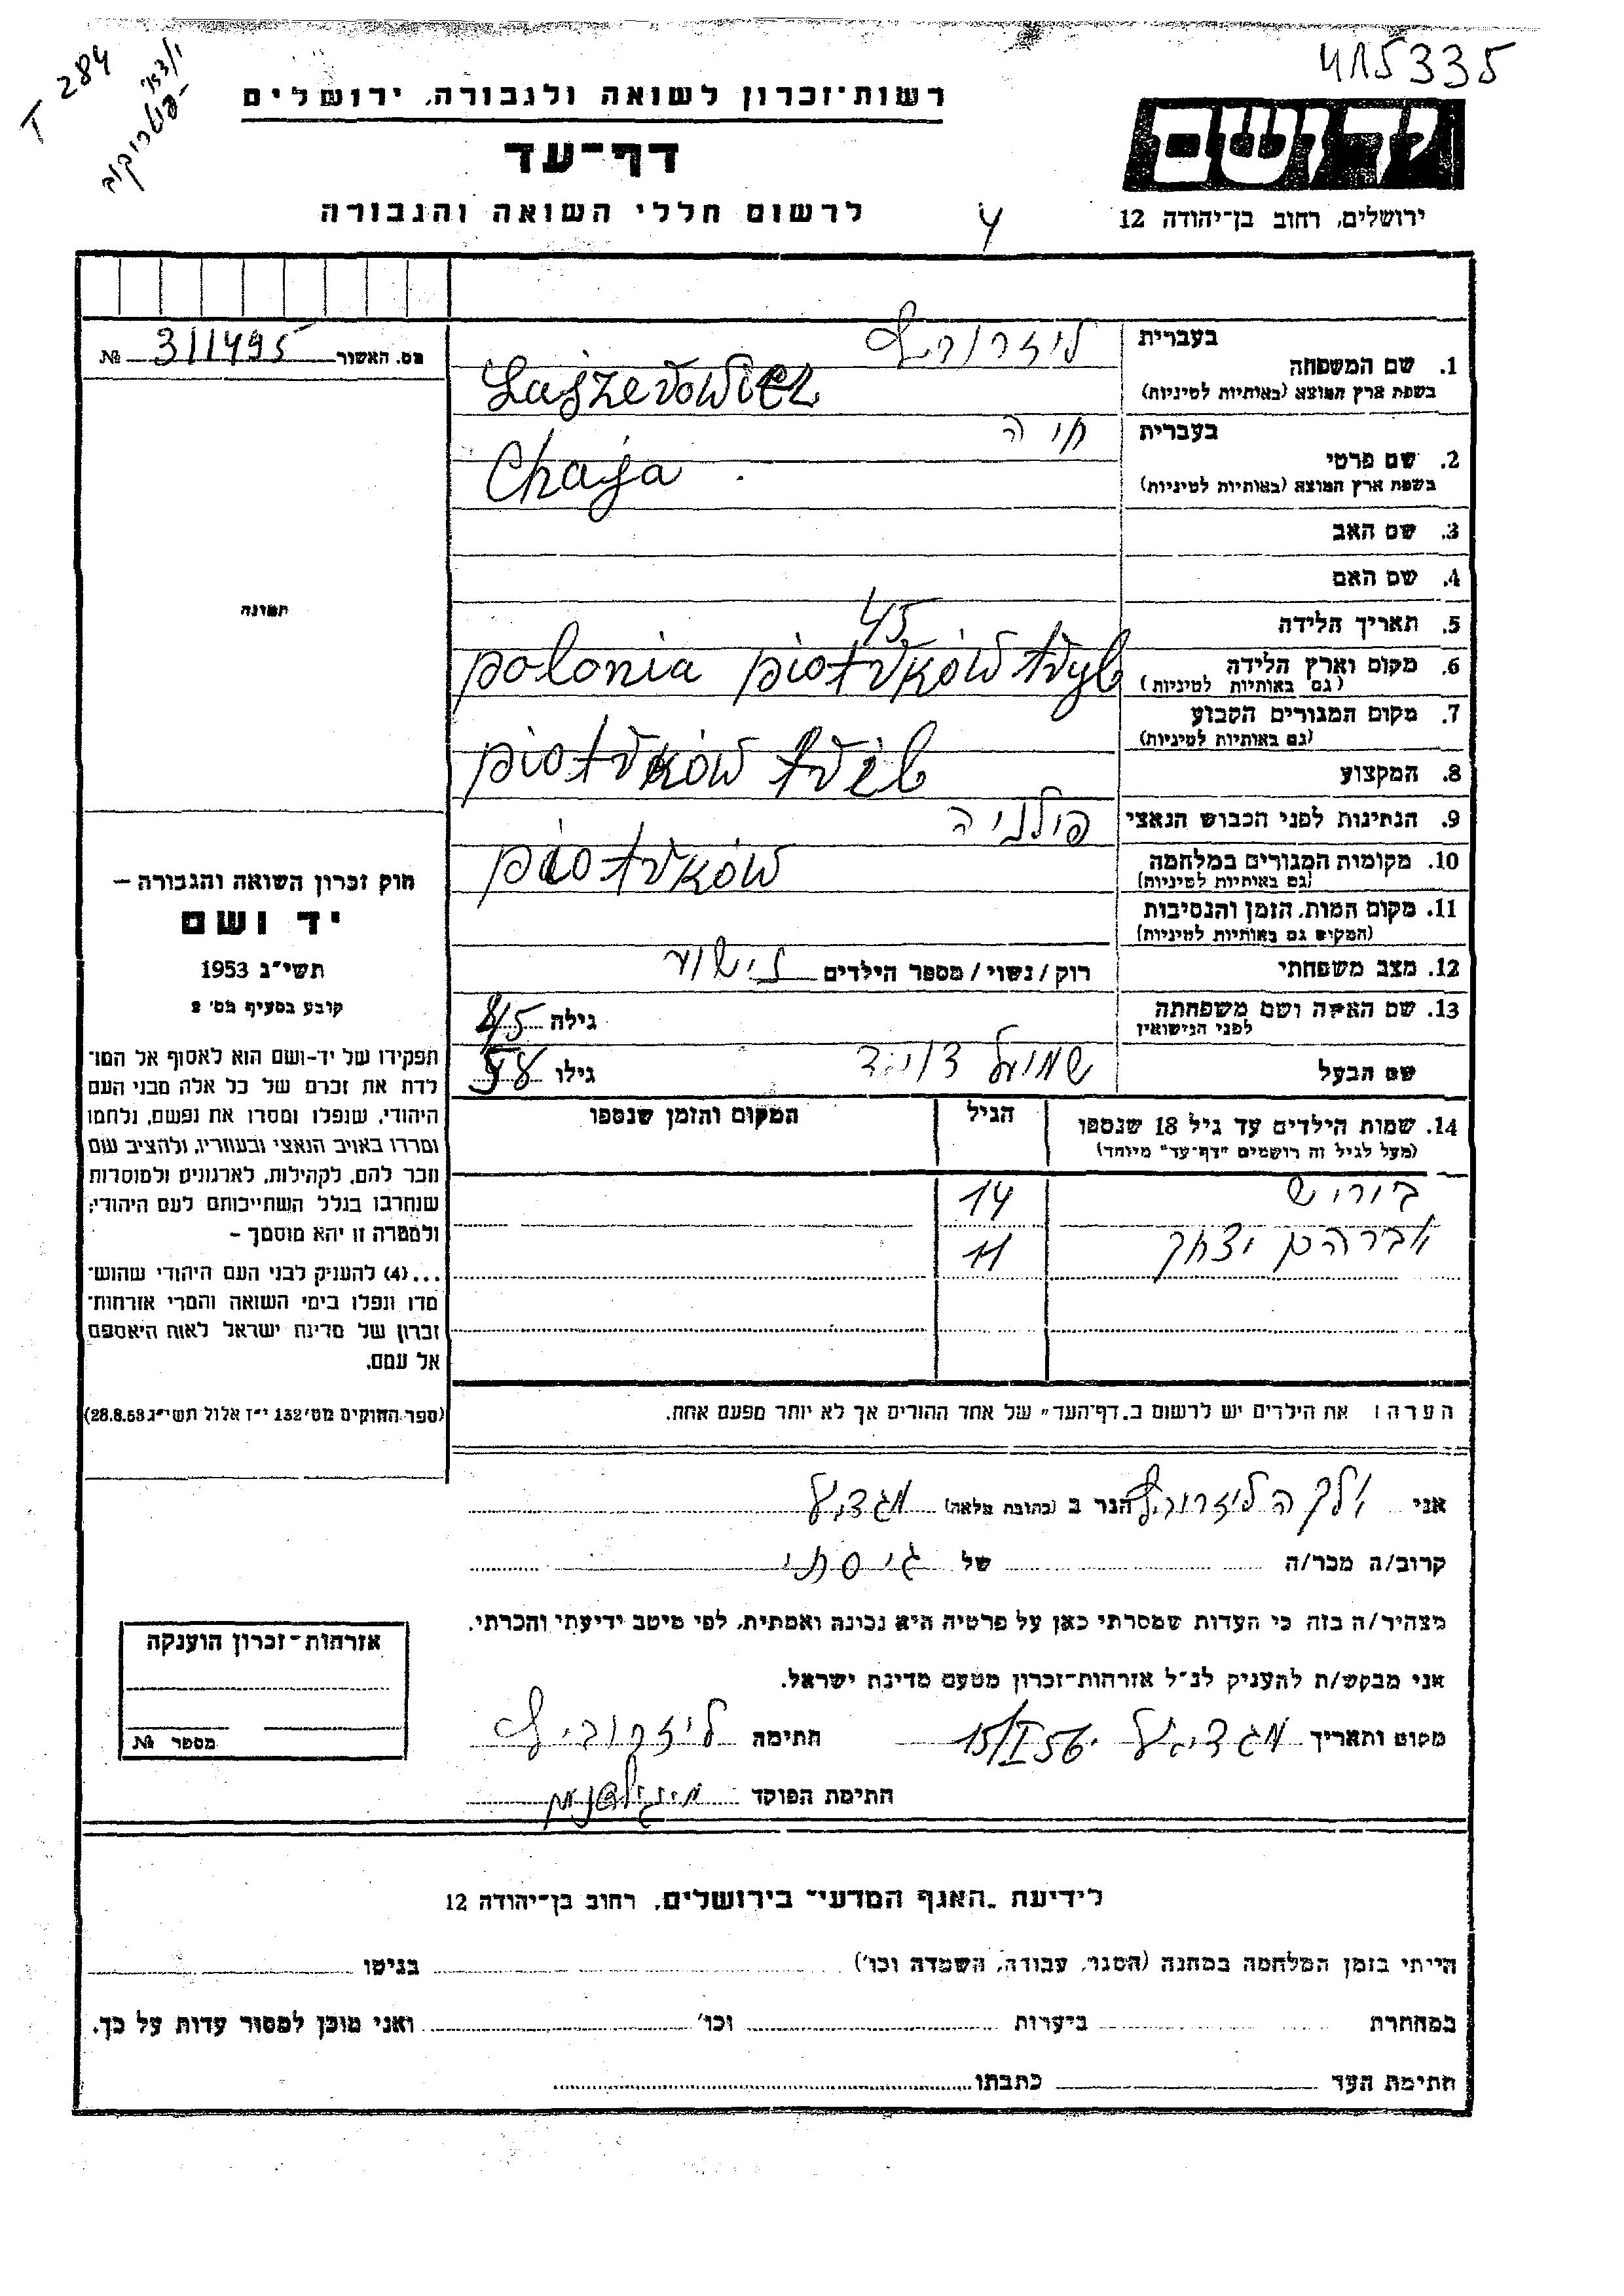 415335
T 284
רשות־זכרון לשואה ולגבורה, ירושלים
דף־עד
לרשום חללי השואה והגבורה
ידושם
ירושלים, רחוב בן־יהודה 12
מס. האשור 311495 №
תמונה
1. שם המשפחה
בעברית
בשפת ארץ המוצא (באותיות לטיניות)
2. שם פרטי
בעברית חיה
בשפת ארץ המוצא (באותיות לטיניות) Chaja
3. שם האב
4. שם האם
5. תאריך הלידה 45
6. מקום וארץ הלידה polonia piotrków tryb
(גם באותיות לטיניות)
7. מקום המגורים הקבוע piotrków trib
(גם באותיות לטיניות)
8. המקצוע
9. הנתינות לפני הכבוש הנאצי פולניה
10. מקומות המגורים במלחמה piotrków
(גם באותיות לטיניות)
11. מקום המות, הזמן והנסיבות
(המקום גם באותיות לטיניות)
12. מצב משפחתי רוק/נשוי/מספר הילדים
13. שם האשה ושם משפחתה
לפני הנישואין
גילה 45
שם הבעל שמואל דוד
גילו
14. שמות הילדים עד גיל 18 שנספו
(מעל לגיל זה רושמים "דף־עד" מיוחד)
הגיל
המקום והזמן שנספו
14
אברהם יצחק 11
הערה: את הילדים יש לרשום ב„דף־העד" של אחד ההורים אך לא יותר מפעם אחת.
חוק זכרון השואה והגבורה –
יד ושם
תשי"ג 1953
קובע בסעיף מס' 2
תפקידו של יד-ושם הוא לאסוף אל המו־
לדת את זכרם של כל אלה מבני העם
היהודי, שנפלו ומסרו את נפשם, נלחמו
ומרדו באויב הנאצי ובעוזריו, ולהציב שם
וזכר להם, לקהילות, לארגונים ולמוסדות
שנחרבו בגלל השתייכותם לעם היהודי;
ולמטרה זו יהא מוסמך –
...(4) להעניק לבני העם היהודי שהוש־
מדו ונפלו בימי השואה והמרי אזרחות־
זכרון של מדינת ישראל לאות היאספם
אל עמם.
(ספר החוקים מס' 132 י"ז אלול תשי"ג 28.8.53)
אני הגר ב (כתובת מלאה)
קרוב/ה מכר/ה של גיסתי
מצהיר/ה בזה כי העדות שמסרתי כאן על פרטיה היא נכונה ואמתית, לפי מיטב ידיעתי והכרתי.
אני מבקש/ת להעניק לנ"ל אזרחות־זכרון מטעם מדינת ישראל.
מקום ותאריך מגדיאל 15/I 56 חתימה
חתימת הפוקד
אזרחות־זכרון הוענקה
מספר №
לידיעת „האגף המדעי" בירושלים, רחוב בן־יהודה 12
הייתי בזמן המלחמה במחנה (הסגר, עבודה, השמדה וכו') בגיטו
במחתרת ביערות וכו' ואני מוכן למסור עדות על כך.
חתימת העד כתבתו